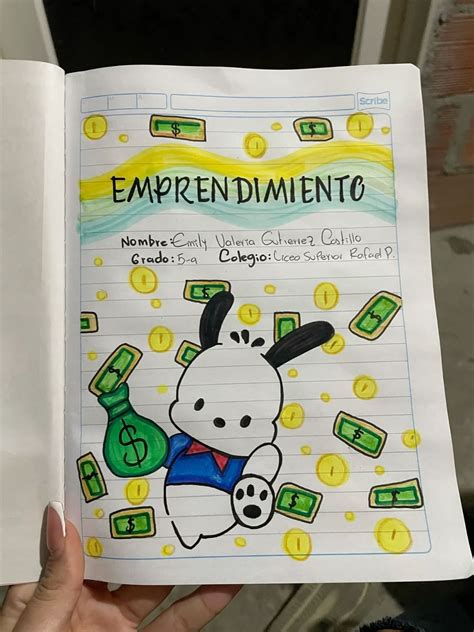 Scribe
EMPRENDIMIENTO
Nombre: Emily Valeria Gutierrez Castillo
Grado: 5-a Colegio: Liceo Superior Rafael P.
$
$
$
$
$
$
$
$
$
$
$
$
$